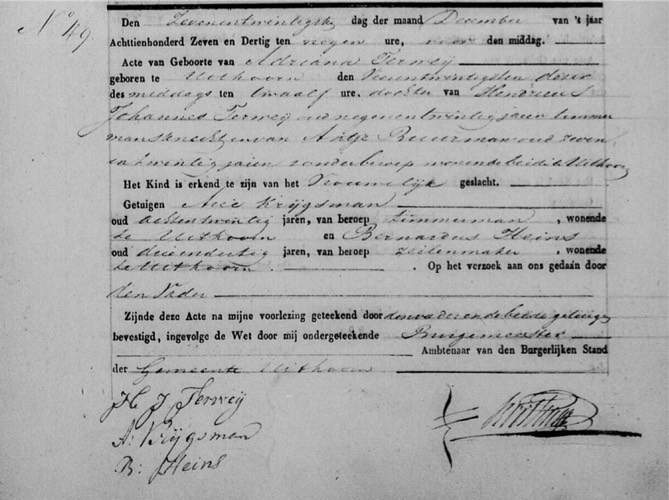 N° 49
Den Zevenentwintigste dag der maand December van 't jaar
Achttienhonderd Zeven en Dertig ten negen ure, voor den middag.
Acte van Geboorte van Adriana Terweij
geboren te Uithoorn den Vierentwintigsten dezer
des middags ten twaalf ure, dochter van Hendricus
Johannes Terweij oud negenentwintig jaren timmer
mansknecht en van Aaltje Buurman oud zeven
en twintig jaren zonder beroep wonende beide te Uithoorn
Het Kind is erkend te zijn van het Vrouwelijk geslacht.
Getuigen Arie Krijgsman
oud achtentwintig jaren, van beroep timmerman, wonende
te Uithoorn en Bernardus Heins
oud drieendertig jaren, van beroep zeilenmaker, wonende
te Uithoorn. Op het verzoek aan ons gedaan door
den Vader
Zijnde deze Acte na mijne voorlezing geteekend door den vader en de beide getuigen
bevestigd, ingevolge de Wet door mij ondergeteekende Burgemeester
Ambtenaar van den Burgerlijken Stand
der Gemeente Uithoorn
H J Terweij
A: Krijgsman
B: Heins